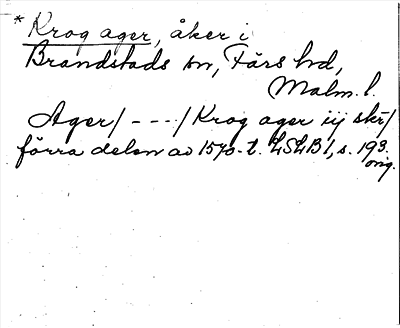 * Krog ager, åker i
Brandstads sn, Färs hd,
Malm. l.
Ager/ - - - / Krog ager iij skr/
förra delen av 1570-t. LSLB 1, s. 193.
orig.